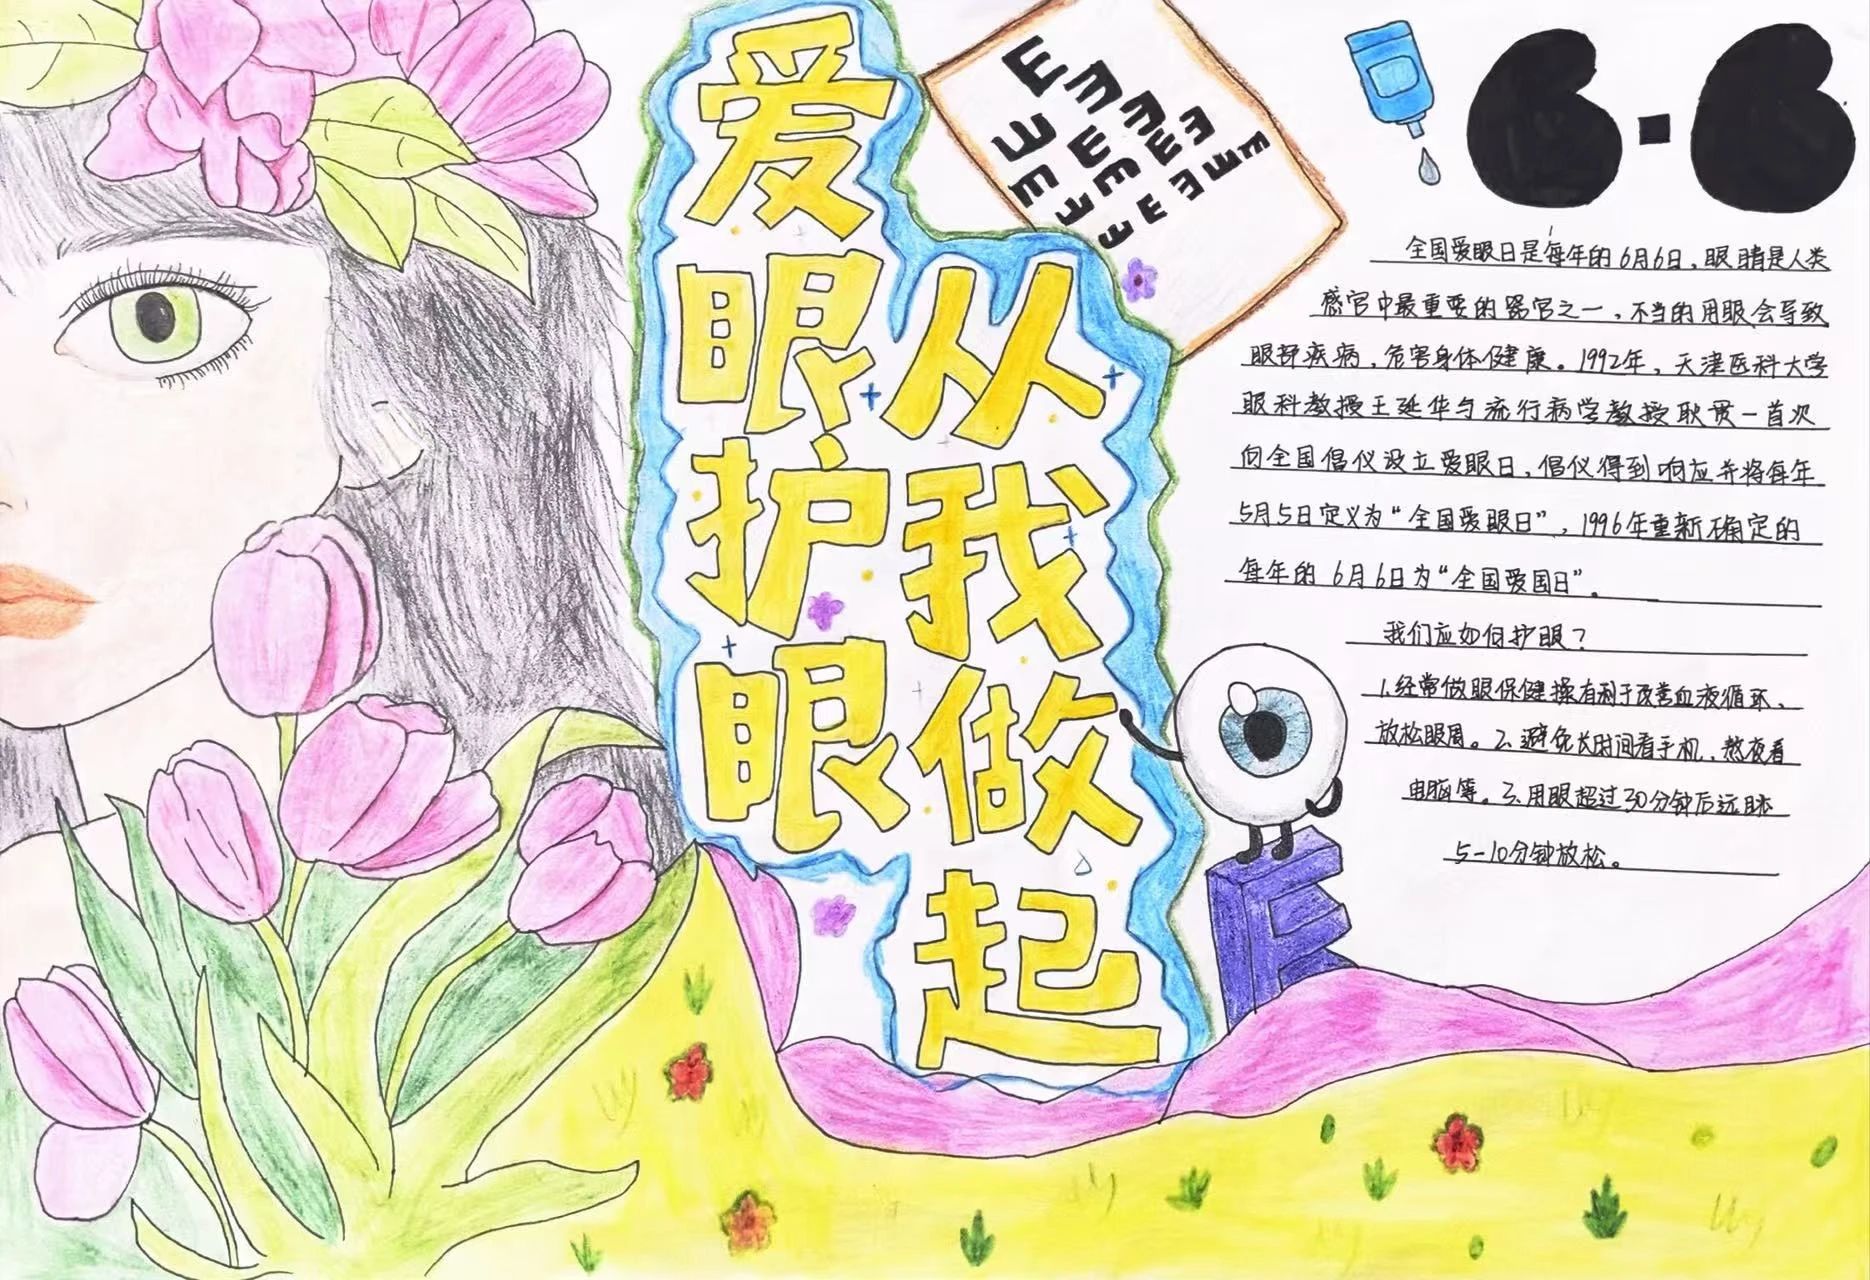 爱眼护眼
从我做起
6·6
全国爱眼日是每年的6月6日，眼睛是人类
感官中最重要的器官之一，不当的用眼会导致
眼部疾病，危害身体健康。1992年，天津医科大学
眼科教授王延华与流行病学教授耿贯一首次
向全国倡仪设立爱眼日，倡仪得到响应并将每年
5月5日定义为“全国爱眼日”，1996年重新确定的
每年的6月6日为“全国爱国日”。
我们应如何护眼？
1.经常做眼保健操有利于改善血液循环、
放松眼周。2.避免长时间看手机，熬夜看
电脑等。3.用眼超过30分钟后远眺
5-10分钟放松。
E